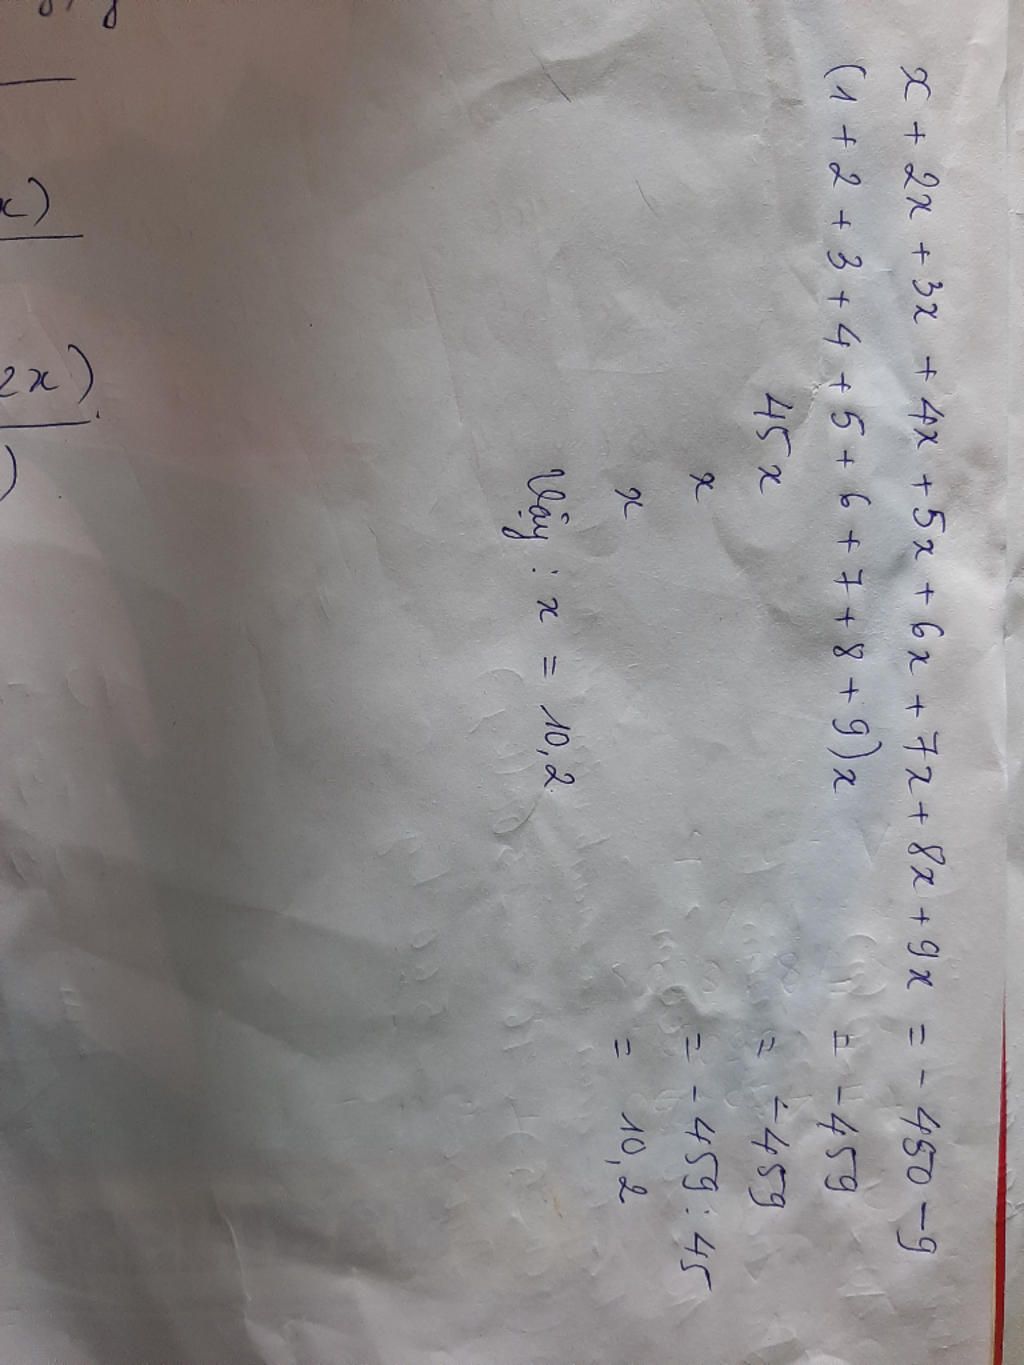 x + 2x + 3x + 4x + 5x + 6x + 7x + 8x + 9x = - 450 - 9
(1 + 2 + 3 + 4 + 5 + 6 + 7 + 8 + 9)x = - 459
45x = - 459
x = - 459 : 45
x = 10,2
Vậy : x = 10,2
x)
2x)
)